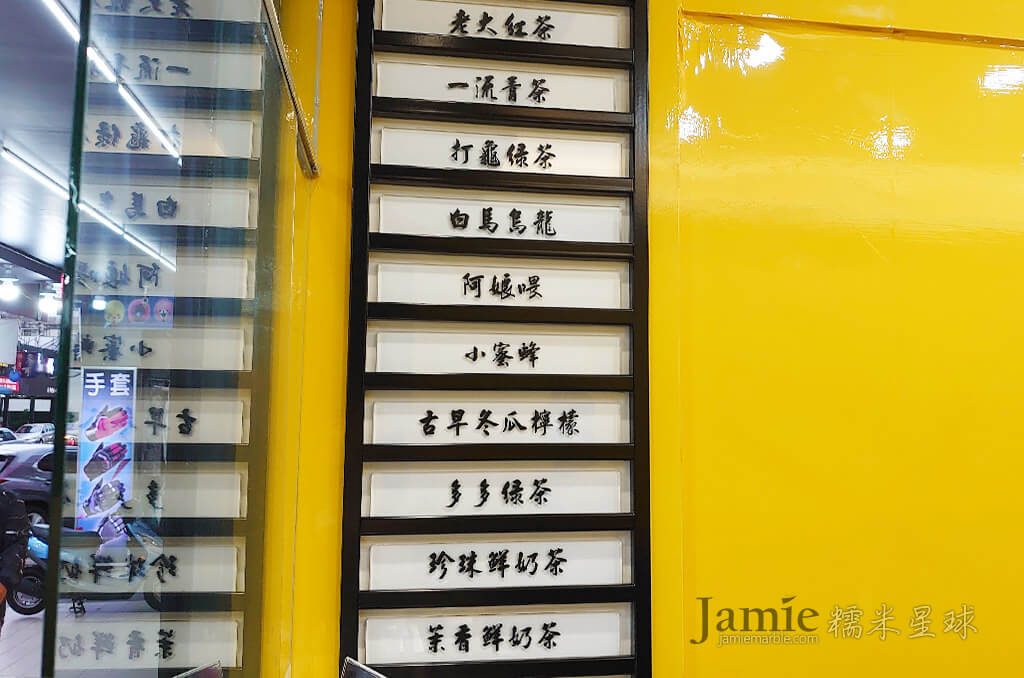 老大紅茶
一流青茶
打龜綠茶
白馬烏龍
阿娘喂
小蜜蜂
古早冬瓜檸檬
多多綠茶
珍珠鮮奶茶
茉香鮮奶茶
手套
Jamie 糯米星球
jamiemarble.com